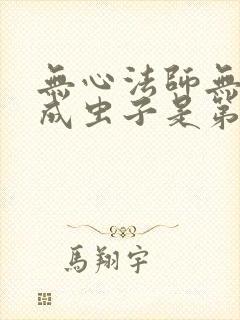 無心法師無
成虫子是第
馬翔宇